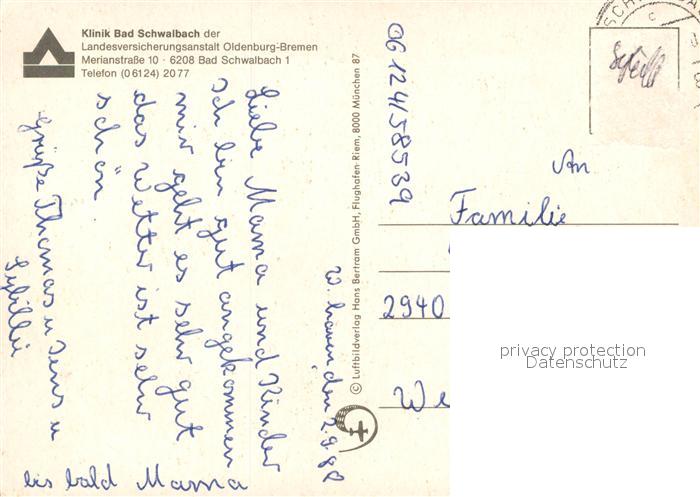 Klinik Bad Schwalbach der
Landesversicherungsanstalt Oldenburg-Bremen
Merianstraße 10 · 6208 Bad Schwalbach 1
Telefon (0 61 24) 20 77
Liebe Mama und Kinder
Ich bin gut angekommen
mir geht es sehr gut
das Wetter ist sehr
schön.
Grüße Thomas u Jens u
bis bald Mama
© Luftbildverlag Hans Bertram GmbH, Flughafen-Riem, 8000 München 87
06124/58539
An
Familie
2940
We
privacy protection
Datenschutz